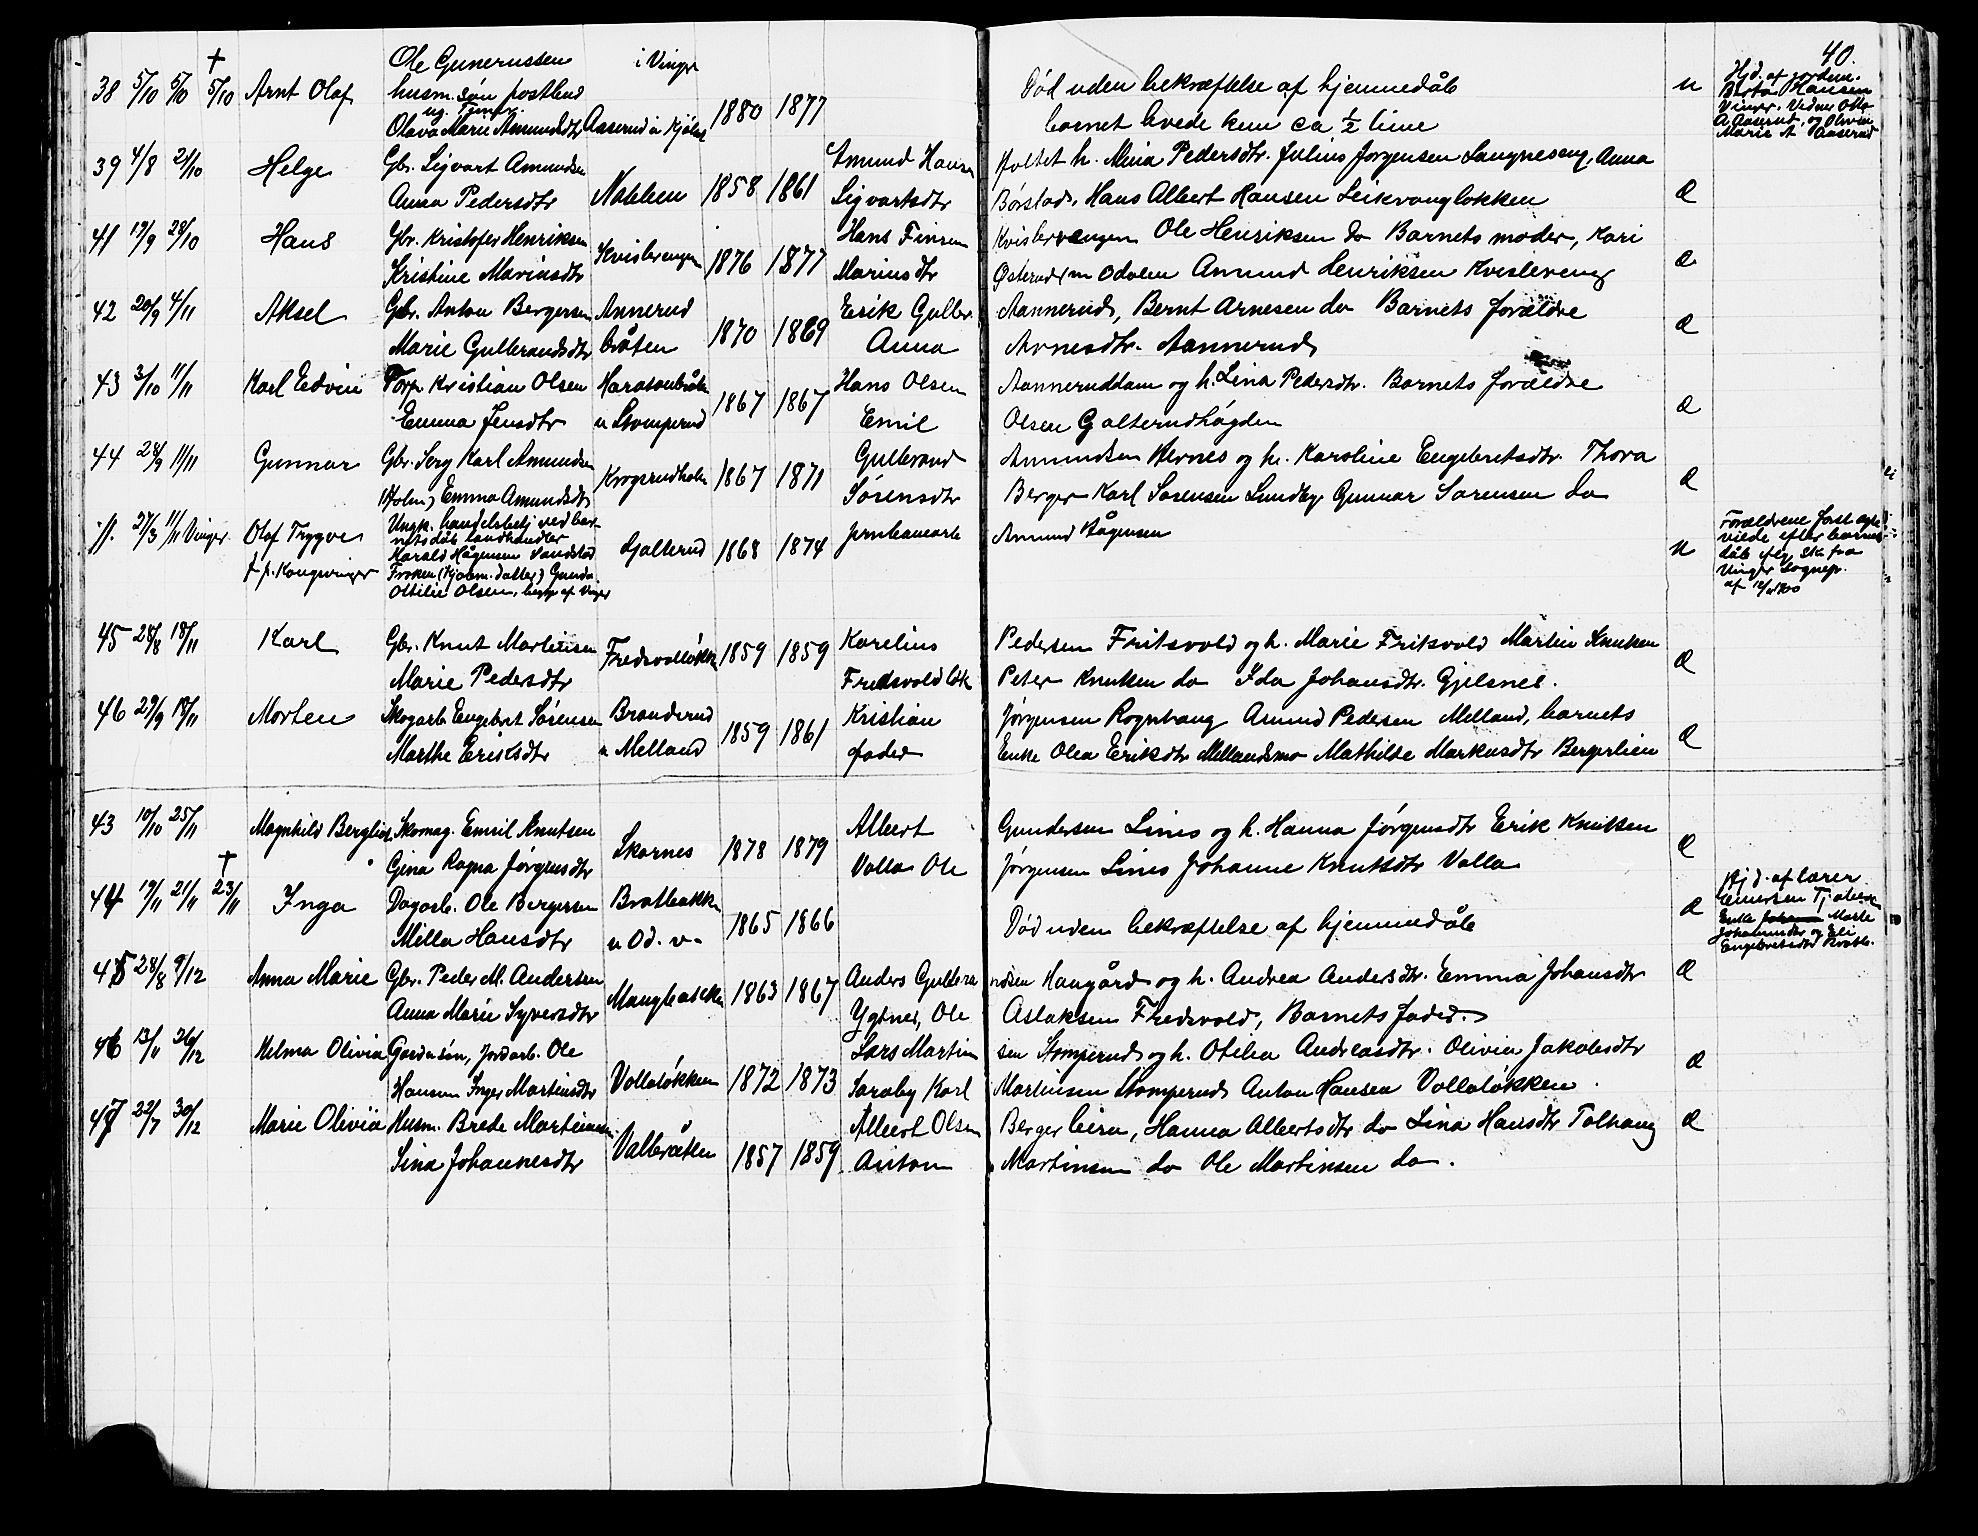 40.
38 5/10 5/10 † 5/10 Arnt Olaf Ole Gunerussen i Vinger
husm. søn postbud
ug. Tjenp.
Olava Marie Amundsdtr Aaserud 1880 1877
Død uden bekræftelse af hjemmedåb u
barnet levede kun ca ½ time
Hjd. af jordem.
Berta Hansen
Vinger. Vidner Otto
A. Aaserud, og Olivia
Marie A Aaserud
39 4/8 21/10 Helge Gbr. Sigvart Amundsen Amund Hansen Holtet h. Mina Pedersdtr. Julius Jorgensen Langneseng, Anna
Anna Pedersdtr Nabben 1858 1861 Sigvartsdtr Børstad, Hans Albert Hansen Leikvangløkken Æ
41 19/9 28/10 Hans Gbr. Kristofer Henriksen Kvislerengen Hans Finsen Kvislerengen Ole Henriksen do Barnets moder, Kari
Kristine Mariusdtr 1876 1877 Mariusdtr Østerud m Odalen Amund Henriksen Kvislereng Æ
42 20/9 4/11 Aksel Gbr. Anton Bergersen Annerud Erik Gulbr. Aannerud, Bernt Arnesen do Barnets forældre
Marie Gulbrandsdtr bråten 1870 1869 Anna Arnesdtr. Aannerud Æ
43 3/10 11/11 Karl Edvin Torp. Kristian Olsen Hans Olsen Aanneruddam og h. Lina Pedersdtr. Barnets forældre
Emma Jensdtr u Stomperud 1867 1867 Emil Olsen Galterudhøgden Æ
44 24/9 11/11 Gunnar Gbr. Serg Karl Amundsen Krogsrudholm Gulbrand Amundsen Hernes og h. Karoline Engebretsdtr. Thora
(Holm) Emma Amundsdtr 1867 1871 Sørensdtr Berger Karl Sørensen Lundby, Gunnar Sorensen do Æ
11. 27/3 11/11 Vinger. Olaf Trygve Ungk. handelsbetj ved bar-
f. p. Kongsvinger netsdåb landhandler
Harald Hågensen Vandstad
Frøken Gunda
Ottilie Olsen, begge af Vinger
Galterud 1868 1874 Amund Hågensen u
Forældrene først ægte-
viede efter barnets
dåb iflg. Sk. fra
Vinger Sognepr.
af
45 28/8 18/11 Karl Gbr. Knut Martinsen Fredsvolløkk. Karelius Pedersen Fritsvold og h. Marie Fritsvold Martin Knutsen
Marie Pedersdtr 1859 1859 Fredsvold løk Peter Knutsen do Ida Johansdtr. Gjelsnes. Æ
46 29/9 18/11 Morten Skogarb. Engebret Sørensen Branderud Kristian Jørgensen Rognhaug Amund Pedersen Melland, barnets
Marthe Eriksdtr u Melland 1859 1861 fader Enke Olea Eriksdtr Mellandsmo Mathilde Markusdtr Bergerlien Æ
43 10/10 25/11 Magnhild Bergliot Skomag. Emil Knutsen Albert Gundersen Linis og h. Hanna Jørgensdtr Erik Knutsen
Gina Ragna Jørgensdtr Skarnes 1878 1879 Valla Ole Jørgensen Linis Johanne Knutsdtr Valla Æ
44 19/11 21/11 † 23/11 Inga Dagarb. Ole Bergersen Bratbakke
Milla Hansdtr u Od. v. 1865 1866 Død uden bekræftelse af hjemmedåb Æ
Hjd. af lærer
Einersen
Enke Johanne Marte
Johannesdtr og Eli
Engebretsdtr Bratb.
45 28/8 9/12 Anna Marie Gbr. Peder M. Andersen Anders Gulbra ndsen Haugård og h. Andrea Andersdtr. Emma Johansdtr Æ
Anna Marie Syversdtr Mangbakken 1863 1867 Ygtnes, Ole Aslaksen Fredsvold, Barnets fader.
46 13/11 26/12 Helma Olivia Gardmsøn, Jordarb. Ole Lars Martin sen Stomperud og h. Otilia Andreasdtr. Olivia Jakobsdtr
Hansen Inger Martinsdtr Valleløkken 1872 1873 Saraby Karl Martinsen Stomperud Anton Hansen Valleløkken Æ
47 22/7 30/12 Marie Olivia Husm. Brede Martinsen Albert Olsen Berger leira, Hanna Albertsdtr do Lina Hansdtr Tolhaug Æ
Lina Johannesdtr Valbråten 1857 1859 Anton Martinsen do Ole Martinsen do.